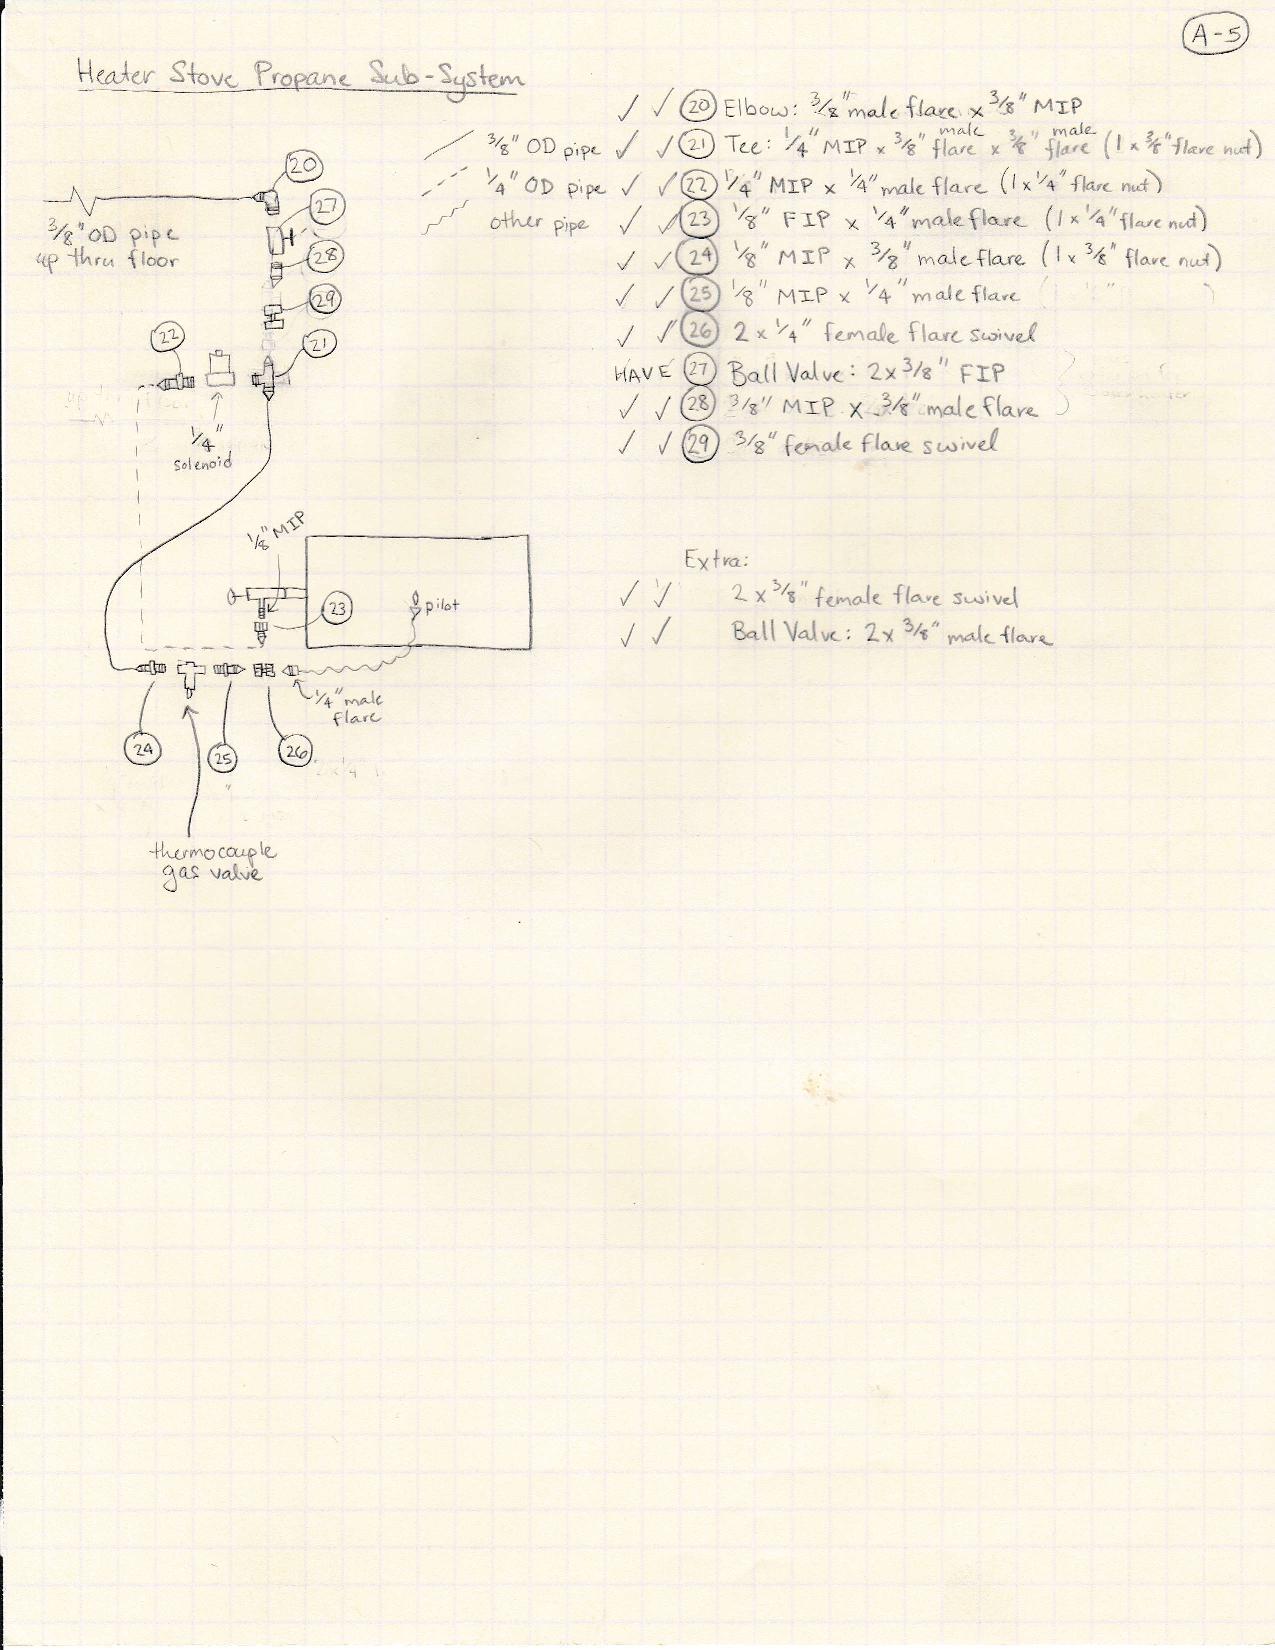 A-5
Heater Stove Propane Sub-System
✓ ✓ 20 Elbow: 3/8" male flare x 3/8" MIP
✓ ✓ 21 Tee: 1/4" MIP x 3/8" male flare x 3/8" male flare (1 x 3/8" flare nut)
✓ ✓ 22 1/4" MIP x 1/4" male flare (1 x 1/4" flare nut)
✓ ✓ 23 1/8" FIP x 1/4" male flare (1 x 1/4" flare nut)
✓ ✓ 24 1/8" MIP x 3/8" male flare (1 x 3/8" flare nut)
✓ ✓ 25 1/8" MIP x 1/4" male flare
✓ ✓ 26 2 x 1/4" female flare swivel
HAVE 27 Ball Valve: 2 x 3/8" FIP
✓ ✓ 28 3/8" MIP x 3/8" male flare
✓ ✓ 29 3/8" female flare swivel
Extra:
✓ ✓ 2 x 3/8" female flare swivel
✓ ✓ Ball Valve: 2 x 3/8" male flare
3/8" OD pipe
1/4" OD pipe
other pipe
20
27
3/8" OD pipe
up thru floor
28
29
22
21
1/4"
solenoid
1/8" MIP
23
pilot
1/4" male
flare
24
25
26
thermocouple
gas valve